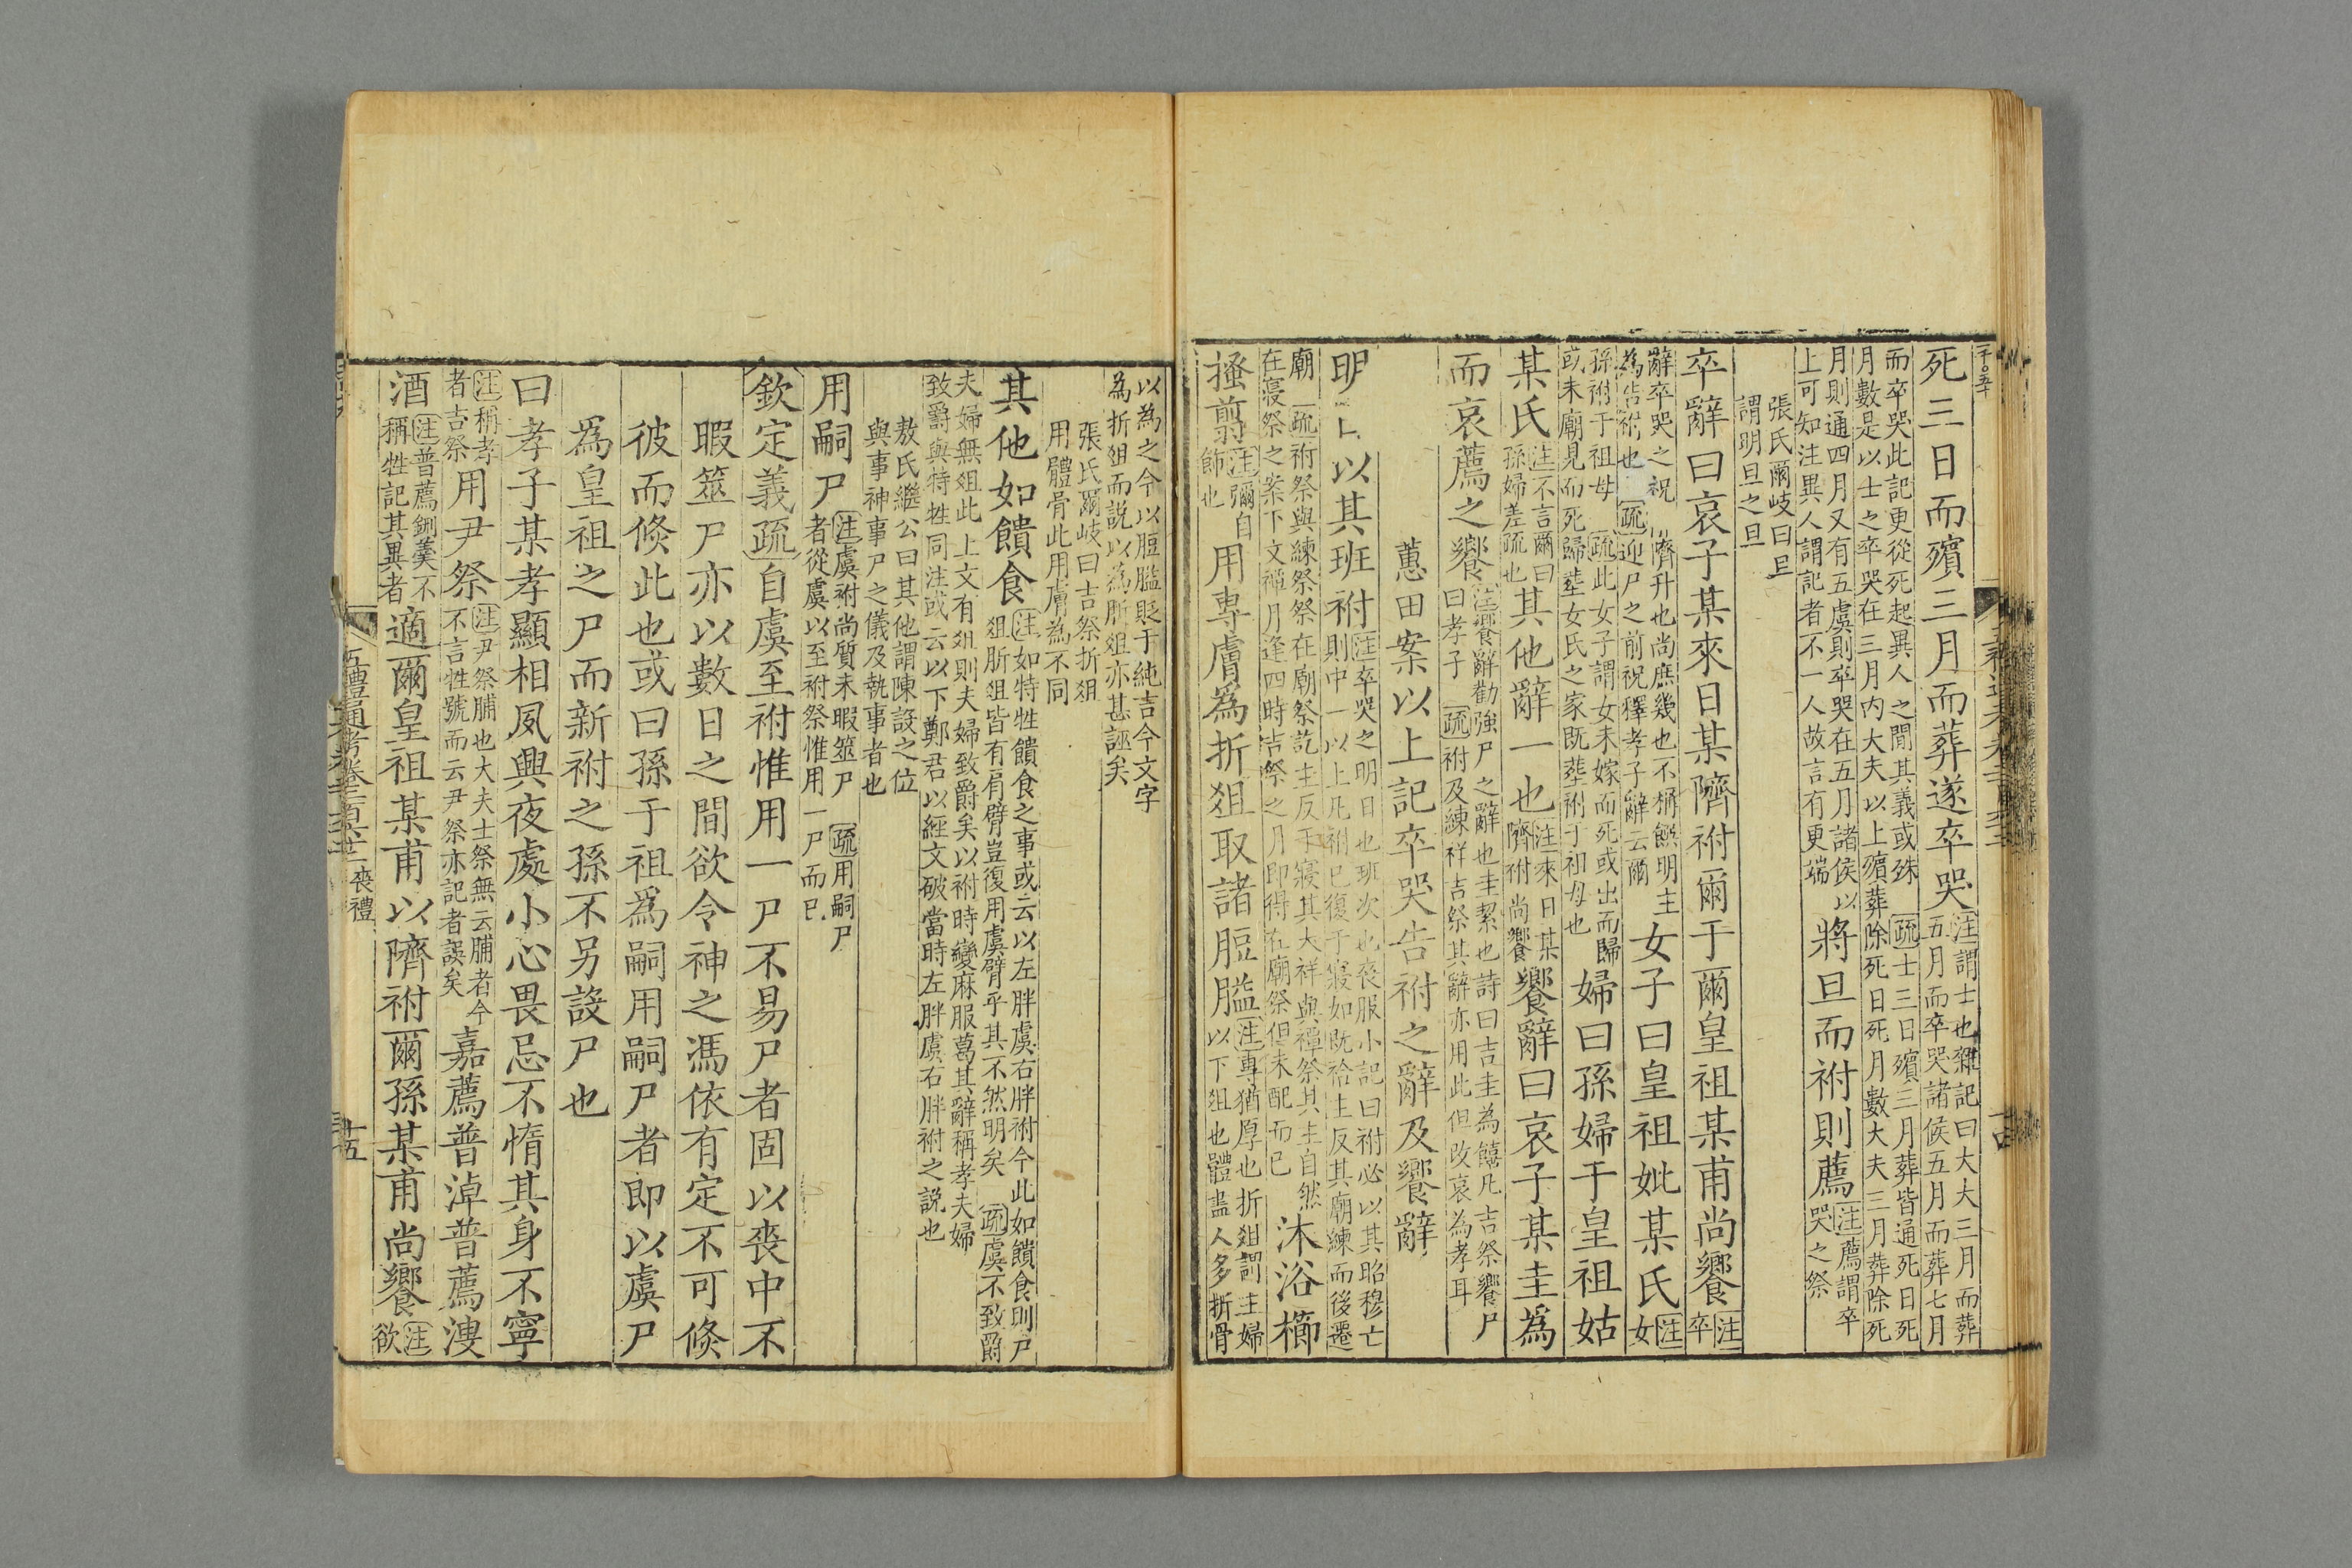 死三日而殯三月而葬遂卒哭注謂士也雜記曰大夫三月而葬
五月而卒哭諸侯五月而葬七月
而卒哭此記更從死起異人之間其義或殊疏士三日殯三月葬皆通死日死
月數是以士之卒哭在三月內大夫以上殯葬除死日死月數大夫三月葬除死
月則通四月又有五虞則卒哭在五月諸侯以
上可知注異人謂記者不一人故言有更端將旦而祔則薦注薦謂卒
哭之祭
張氏爾岐曰旦
謂明旦之旦
卒辭曰哀子某來日某隮祔爾于爾皇祖某甫尚饗注
卒
辭卒哭之祝隮升也尚庶幾也不稱饌明主
為告祔也疏迎尸之前祝釋孝子辭云爾女子曰皇祖妣某氏注
女
孫祔于祖母疏此女子謂女未嫁而死或出而歸
或未廟見而死歸葬女氏之家既葬祔于祖母也婦曰孫婦于皇祖姑
某氏注不言爾曰
孫婦差疏也其他辭一也注來日某
隮祔尚饗饗辭曰哀子某圭為
而哀薦之饗注饗辭勸強尸之辭也圭絜也詩曰吉圭為饎凡吉祭饗尸
曰孝子疏祔及練祥吉祭其辭亦用此但改哀為孝耳
蕙田案以上記卒哭告祔之辭及饗辭
明日以其班祔注卒哭之明日也班次也喪服小記曰祔必以其昭穆亡
則中一以上凡祔已復于寢如既祫主反其廟練而後遷
廟疏祔祭與練祭祭在廟祭訖主反于寢其大祥與禫祭其主自然
在寢祭之案下文禫月逢四時吉祭之月即得在廟祭但未配而已沐浴櫛
搔翦注彌自
飾也用專膚為折俎取諸脰膉注專猶厚也折俎謂主婦
以下俎也體盡人多折骨
以為之今以脰膉貶于純吉今文字
為折俎而說以為肵俎亦甚誣矣
張氏爾岐曰吉祭折俎
用體骨此用膚為不同
其他如饋食注如特牲饋食之事或云以左胖虞右胖祔今此如饋食則尸
俎肵俎皆有肩臂豈復用虞臂乎其不然明矣疏虞不致爵
夫婦無俎此上文有俎則夫婦致爵矣以祔時變麻服葛其辭稱孝夫婦
致爵與特牲同注或云以下鄭君以經文破當時左胖虞右胖祔之說也
敖氏繼公曰其他謂陳設之位
與事神事尸之儀及執事者也
用嗣尸注虞祔尚質未暇筮尸疏用嗣尸
者從虞以至祔祭惟用一尸而已
欽定義疏自虞至祔惟用一尸不易尸者固以喪中不
暇筮尸亦以數日之間欲令神之馮依有定不可倏
彼而倏此也或曰孫于祖為嗣用嗣尸者即以虞尸
為皇祖之尸而新祔之孫不另設尸也
曰孝子某孝顯相夙興夜處小心畏忌不惰其身不寧
注稱孝
者吉祭用尹祭注尹祭脯也大夫士祭無云脯者今
不言牲號而云尹祭亦記者誤矣嘉薦普淖普薦溲
酒注普薦鉶羹不
稱牲記其異者適爾皇祖某甫以隮祔爾孫某甫尚饗注
欲
五禮通考卷二百六十二喪禮
十五